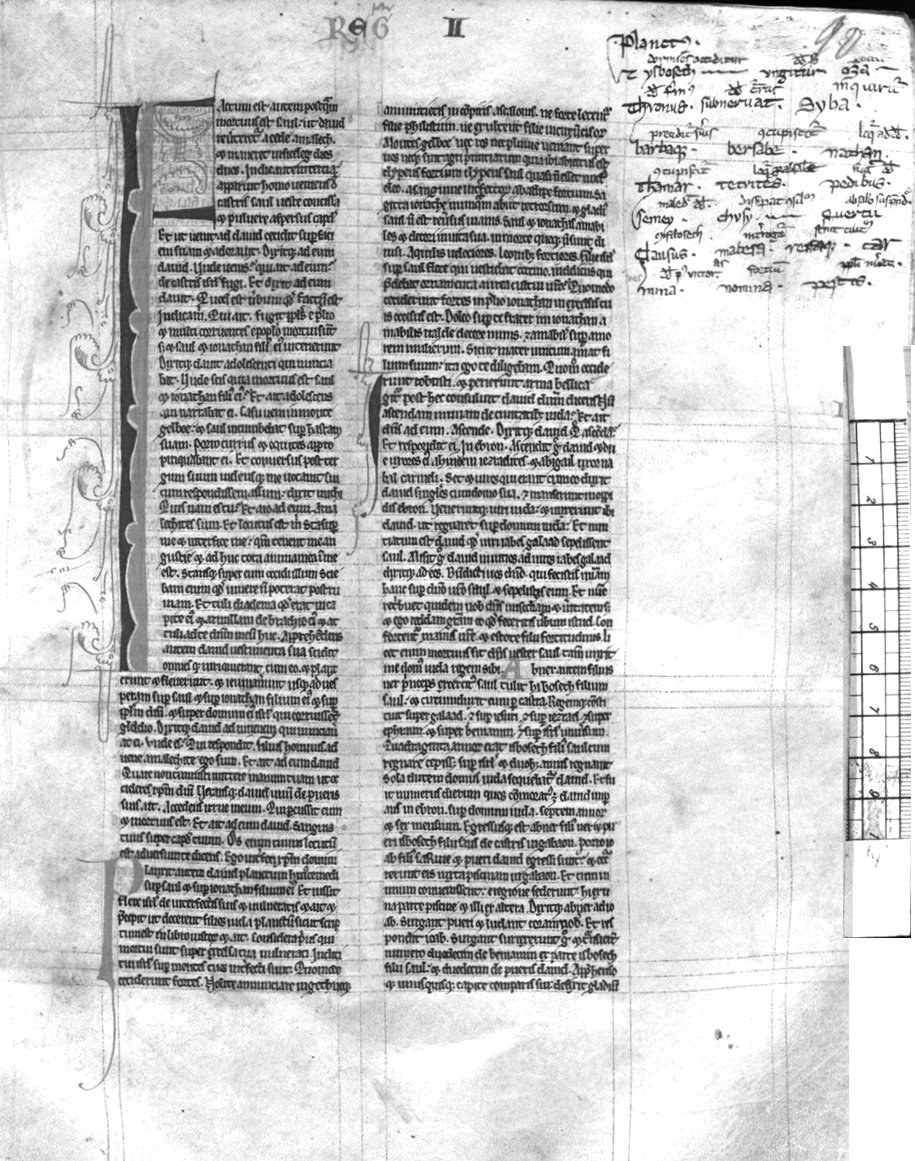 REG II
90
Planctꝰ.
ysboseth — ungitur oza
Thronus. subneruat. Syba.
barbaꝗ. bersabe. nathan
Thamar. tecuites. pedibus.
semey. chusy. quercu
Clausus. mabera. respha. car
mina. nomina. pestis.
Factum est autem postq̄m
mortuus est saul. ut dauid
reūteret᷑ a cede amalech.
⁊ maneret in siceleg dies
duos. In die autem tertia
apparuit homo ueniens d̄
castris saul ueste conscissa
⁊ puluere aspersus caput
Et ut uenit ad dauid cecidit sup faciē
suam ⁊ adorauit. Dixitq; ad eum
dauid. Unde uenis? qui ait ad eum.
de castris isrl̄ fugi. Et dixit ad eum
dauit. Quod est ūbum qd̄ factū est
indica m̄. Qui ait. fugit ppl̄s e p̄lio
⁊ multi corruentes e populo mortui sūt
s; ⁊ saul ⁊ ionathan filiꝰ eiꝰ interierunt
Dixitq; dauit adolescenti qui nuncia
bat. Unde scis quia mortuus est saul
⁊ ionathan filiꝰ eiꝰ? Et ait adolescens
qui narrabat ei. Casu ueni in monte
gelboe. ⁊ saul incumbebat sup hastam
suam. Porro currus ⁊ equites appro
pinquabant ei. Et conuersus post ter
gum suum uidensq; me uocauit. cui
cum respondissem assum. dixit michi
Quis nam es tu? Et aio ad eum. Ama
lechites sum. Et locutus est m̄ sta sup
me ⁊ interfice me. qm̄ tenent me an
gustie ⁊ ad huc tota anima mea ī me
est. Stansq; super eum occidi illum. scie
bam enim qd̄ uiuere ñ poterat post ru
inam. Et tuli diadema qd̄ erat in ca
pite eiꝰ ⁊ armillam de brachio eiꝰ ⁊ at
tuli ad te dn̄m meū huc. Apprehendens
autem dauid uestimenta sua scidit
omnes q; uiri qui erant cum eo. ⁊ planx
erunt ⁊ fleuerunt. ⁊ ieiunauerunt usq; ad ues
peram sup saul ⁊ sup ionathan filium eiꝰ ⁊ sup
ppl̄m dn̄i. ⁊ super domum isrl̄ qui corruissēt
gladio. Dixitq; dauid ad iuuenem qui nunciau
at ei. Unde es? Qui respondit. filius hominis ad
uene amalechite ego sum. Et ait ad eum dauid
Quare non timuisti mittere manum tuam ut oc
cideres xp̄m dn̄i? Uocansq; dauid unū de pueris
suis ait. Accedens irrue in eum. Qui percussit eum
⁊ mortuus est. Et ait ad eum dauid. Sanguis
tuus super caput tuum. Os enim tuum locutū
est aduersum te dicens. Ego interfeci xp̄m domini
Planxit autem dauid planctum hui'cemodi
sup saul ⁊ sup ionathan filium eiꝰ. Et iussit
flere
precepit ut docerent filios iuda planctū sicut scrip
tum est in libro iustoꝝ ⁊ ait. Considera isrl̄ p his qui
mortui sunt super excelsa tua uulnerati. Incliti
tui isrl̄ sup montes tuos interfecti sunt. Quomodo
ceciderunt fortes. Nolite annunciare in geth neq;
annuncietis in compitis ascalonis. ne forte letent᷑
filie philistiim. ne exultent filie incircūcisoꝝ
Montes gelboe nec ros nec pluuie ueniant super
uos neq; sint agri primiciarum quia ibi abiectus est
clypeus fortium clypeus saul quasi ñ esset unctꝰ
oleo. a sanguine interfectoꝝ ab adipe fortium. sa
gitta ionathe numq̄m abiit retrorsum. ⁊ gladiꝰ
saul ñ est reuersus inanis. Saul ⁊ ionathas amabi
les ⁊ decori in uita sua. in morte quoq; ñ sunt di
uisi. Aquilis uelociores. leonibꝰ fortiores. filie isrl̄
sup saul flete qui uestiebat coccino. in deliciis qui
p̄bebat ornamenta aurea cultui ur̄o. Quomodo
ceciderunt fortes in p̄lio ionathan in excelsis tu
is occisus est. Doleo sup te frater mi ionathan a
mabilis ualde decore nimis. ⁊ amabil' sup amo
rem mulierum. Sicut mater unicum amat fi
lium suum. ita ego te diligebam. Quom̄ cecide
runt robusti. ⁊ perierunt arma bellica
Igit᷑ post hec consuluit dauid dn̄m dicens. Nū
ascendam in unam de ciuitatibꝰ iuda? Et ait
dn̄s ad eum. Ascende. Dixitq; dauid. Q̊ ascēdā?
Et respondit ei. In ebron. Ascendit g̊ dauid ⁊ due
uxores eiꝰ achinoem iezraelites. ⁊ abigail uxor na
bal carmeli. Set ⁊ uiros qui erant cum eo duxit
dauid singlos cum domo sua. ⁊ manserunt in oppi
dis ebron. Ueneruntq; uiri iuda. ⁊ unxerunt ibi
dauid. ut regnaret sup domum iuda. Et nun
ciatum est dauid qd̄ uiri iabes galaad sepelissent
saul. Misit g̊ dauid nuncios ad uiros iabes galaad
dixitq; ad eos. Bn̄dicti uos dn̄o. qui fecistis m̄iam
hanc cum dn̄o ur̄o saul. ⁊ sepelistis eum. Et nūc
retribuet quidem uob dn̄s mīcdiam ⁊ ueritatem.
⁊ ego reddam gr̄am eo qd̄ feceritis uerbum istud. Con
fortent᷑ manus ur̄e. ⁊ estote filii fortitudinis. li
cet enim mortuus sit dn̄s uester saul. tam̄ unxit
me domꝰ iuda regem sibi. Abner autem filius
ner princeps exercitꝰ saul tulit hisboseth filium
saul. ⁊ circumduxit eum p castra. Regemq; cōsti
tuit super galaad. ⁊ sup iesuri. ⁊ sup iezrael. ⁊ super
ephraim. ⁊ super beniamin. ⁊ sup isrl̄ uniuersum.
Quadraginta annoꝝ erat isboseth filꝰ saul cum
regnare cepisset sup isrl̄. ⁊ duobꝰ annis regnauit
Sola autem domus iuda sequebat᷑ dauid. Et fu
it numerus dierum quos cōmorat᷑ ē dauid imp
ans in ebron. sup domum iuda. septem annoꝝ
⁊ sex mensium. Egressusq; est abner filiꝰ ner ⁊ pu
eri isboseth filii saul de castris in gabaon. porro io
ab filiꝰ saruie ⁊ pueri dauid egressi sunt. ⁊ occur
rerunt eis iuxta piscinam in gabaon. Et cum in
unum conuenissent. e regione sederunt. hii ex u
na parte piscine ⁊ illi ex altera. Dixitq; abner ad io
ab. Surgant pueri ⁊ ludant coram nob. Et res
pondit ioab. Surgant. Surrexerunt g̊ ⁊ transierūt
numero duodecim de beniamin ex parte isboseth
filii saul. ⁊ duodecim de pueris dauid. Apprehenso
q; unusquisq; capite comparis sui. defixit gladiū